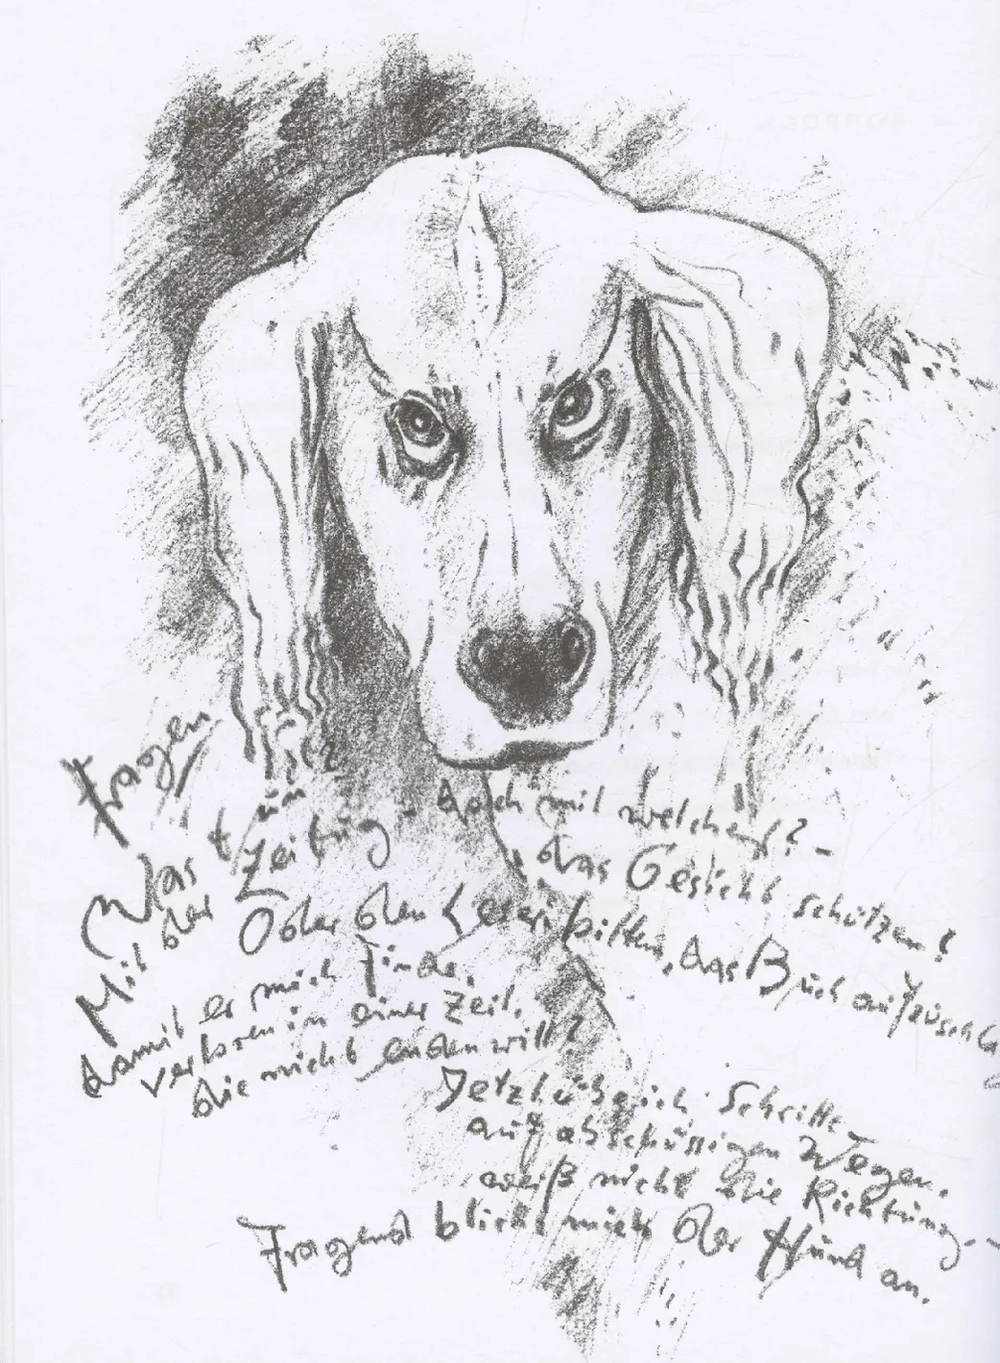 Fragen
Was tun?
Mit der Zeitung – doch mit welcher? –
das Gesicht schützen?
Oder den Leser bitten, das Buch aufzuschla
damit er mich finde,
verloren in einer Zeit,
die nicht enden will?
Jetzt üb ich Schritte
auf abschüssigen Wegen,
weiß nicht die Richtung –
Fragend blickt mich der Hund an.